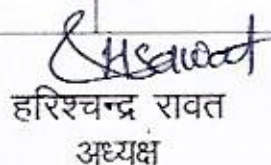 हरिश्चन्द्र रावत
अध्यक्ष